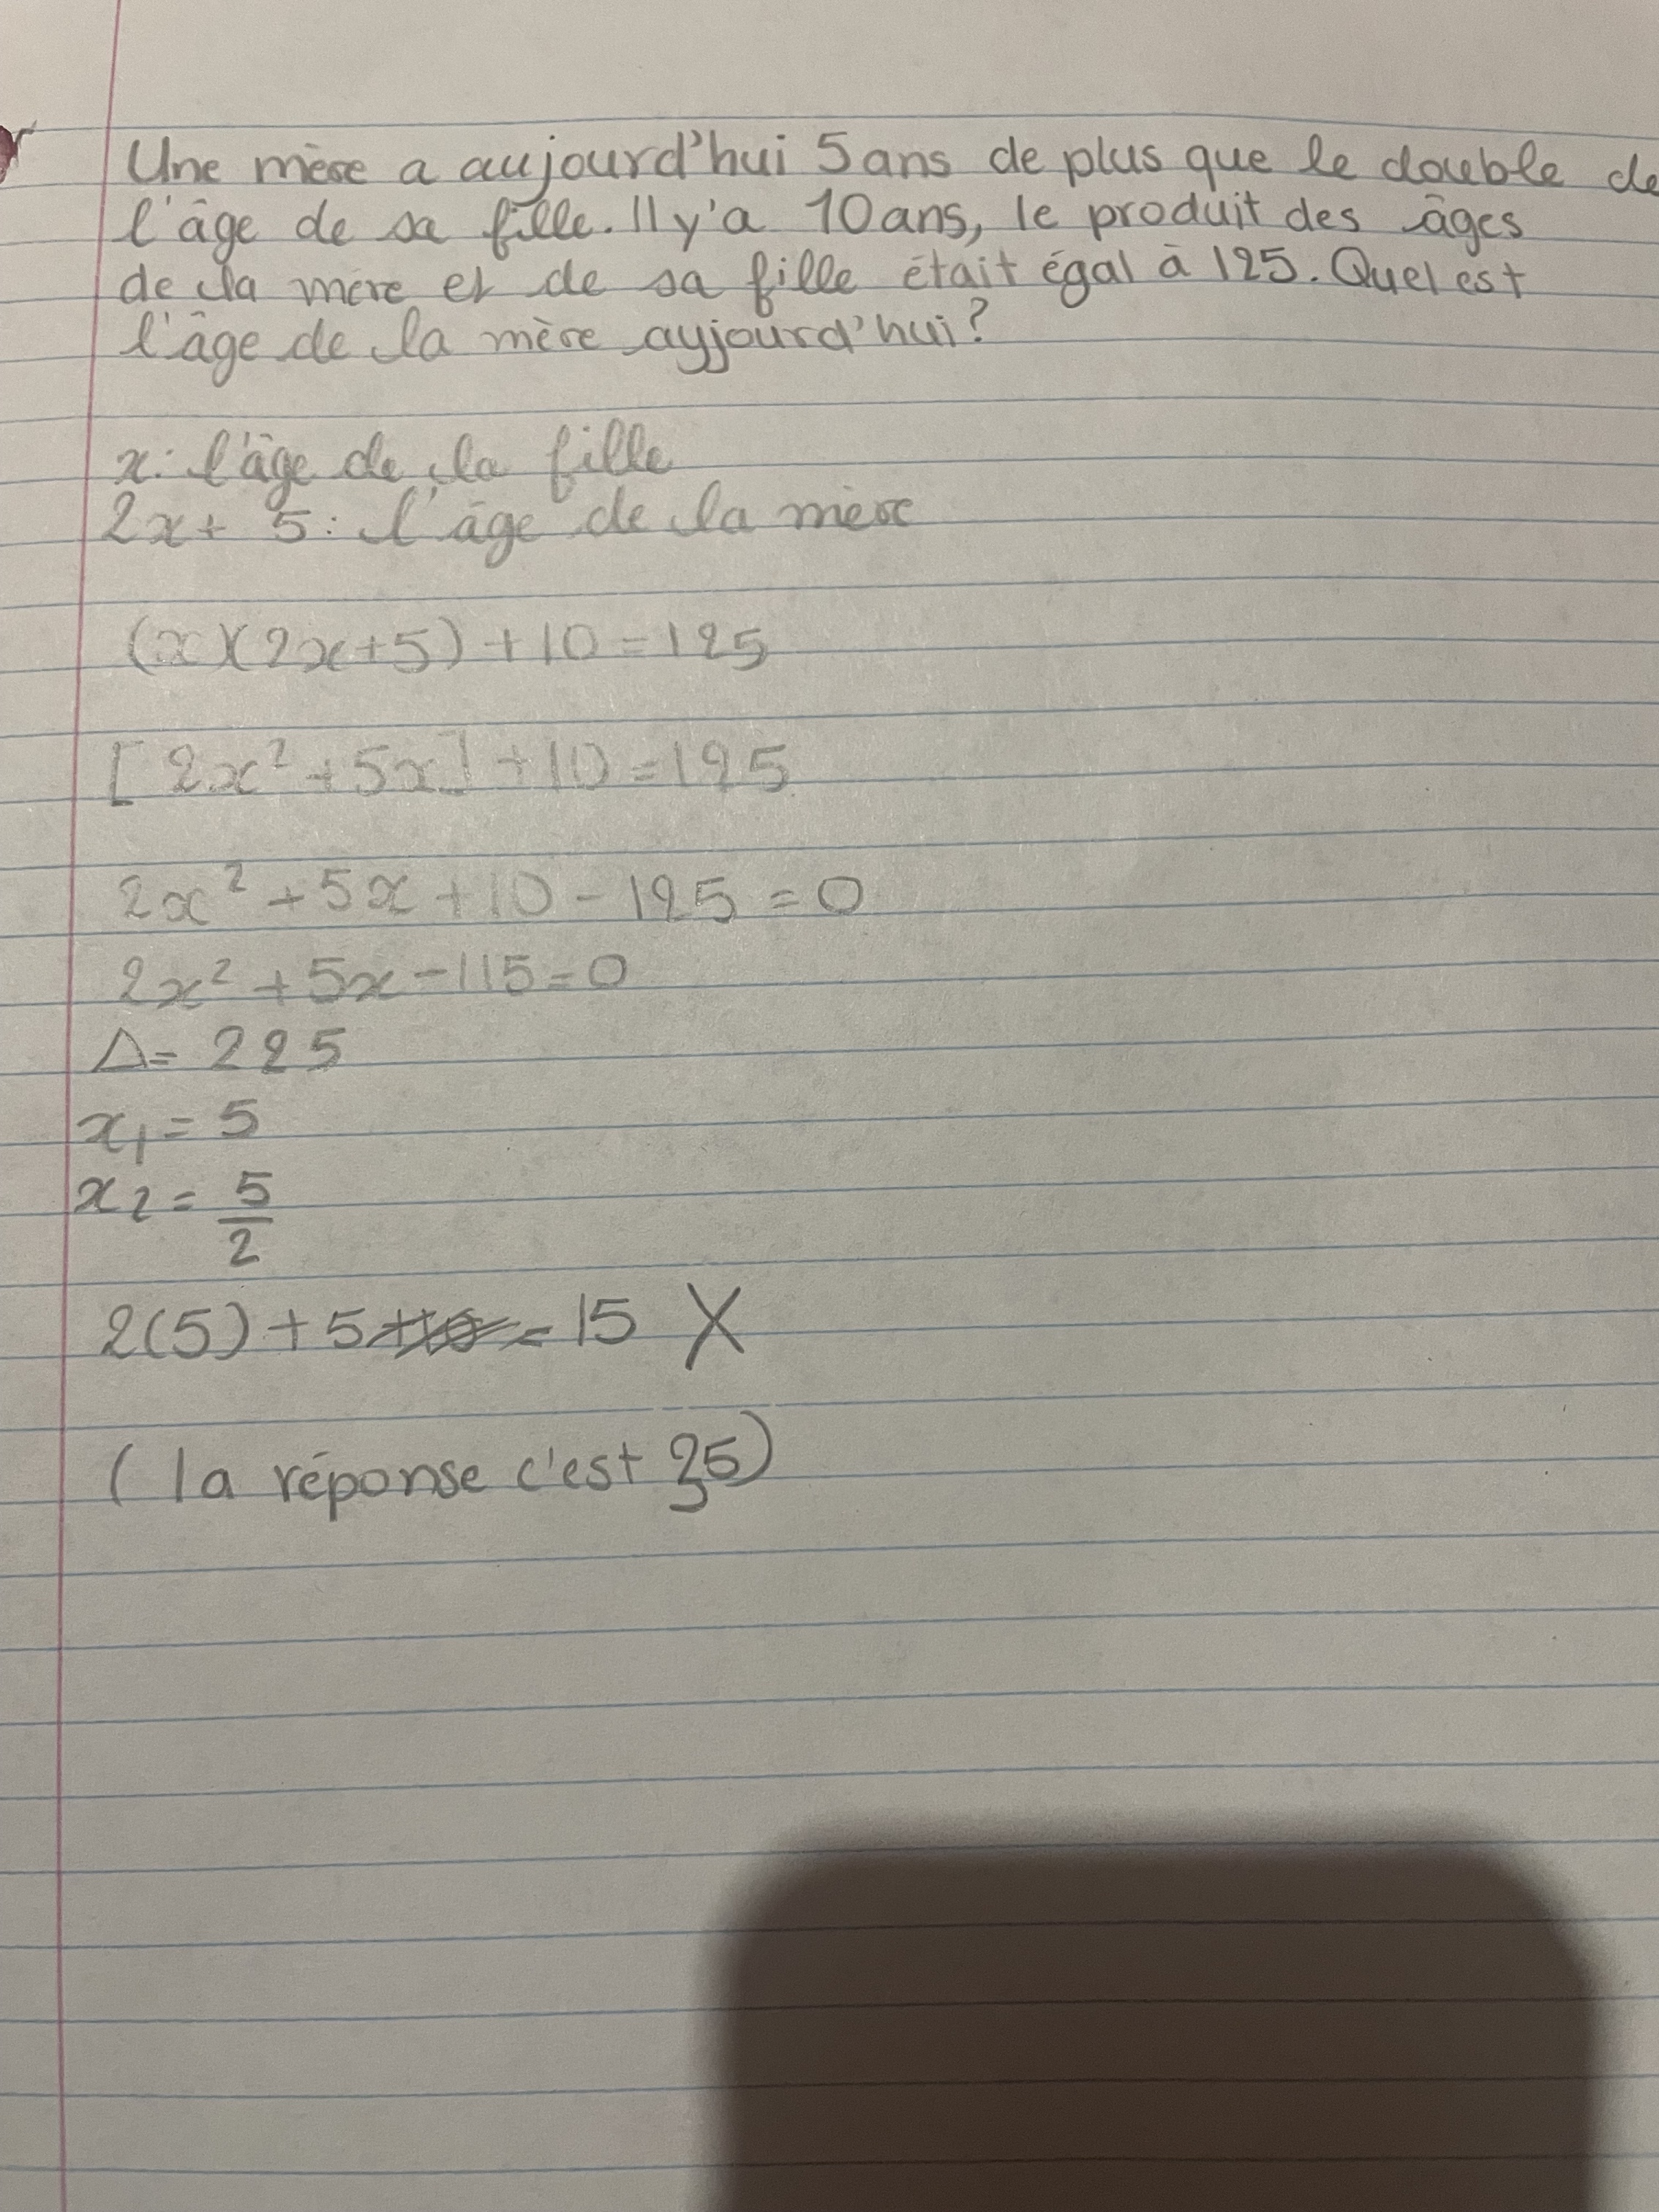 Une mère a aujourd'hui 5 ans de plus que le double de
l'âge de sa fille. Il y'a 10 ans, le produit des âges
de la mère et de sa fille était égal à 125. Quel est
l'âge de la mère ayjourd'hui?
x: l'âge de la fille
2x + 5: l'âge de la mère
(x)(2x+5) + 10 = 125
[2x² + 5x] + 10 = 125
2x² + 5x + 10 - 125 = 0
2x² + 5x - 115 = 0
Δ = 225
x₁ = 5
x₂ = 5/2
2(5) + 5 +10 = 15 X
(la réponse c'est 35)